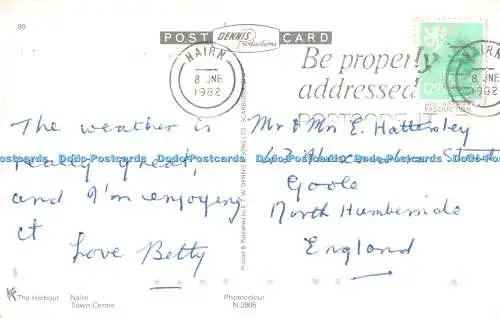 90
POST DENNIS Productions CARD
NAIRN
8 JNE
1982
Be properly
addressed
POSTCODE IT
NAIRN
8 JNE
1982
12½
PRODUCTION
The weather is
really great,
and I'm enjoying
it
Love Betty
Mr & Mrs E. Hattersley
Alexandra Street
Goole
North Humberside
England
Dodo-Postcards Dodo-Postcards Dodo-Postcards Dodo-Postcards Dodo-Postcards Dodo-Postcards
Printed & Published by E.T.W. DENNIS & SONS LTD. SCARBOROUGH
The Harbour Nairn
Town Centre
Photocolour
N.2905